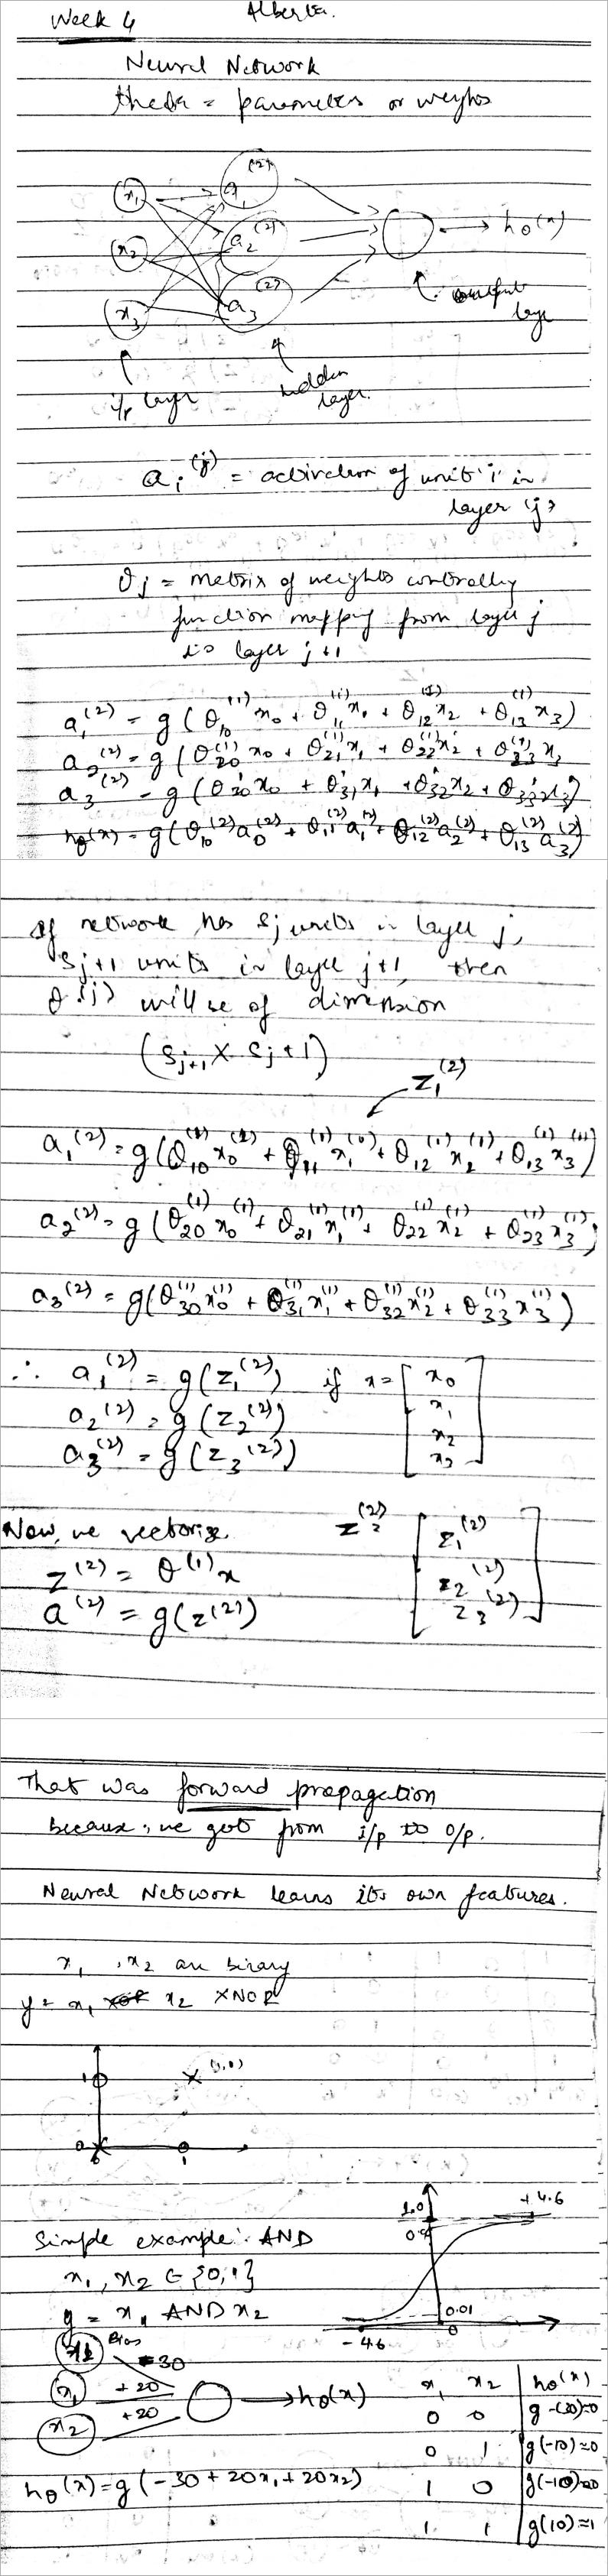 Week 4
Alberta.
Neural Network
theta = parameters or weights
x₁ a₁⁽²⁾
x₂ a₂⁽²⁾ → hθ(x)
x₃ a₃⁽²⁾
output layer
i/p layer hidden layer.
aᵢ⁽ʲ⁾ = activation of unit 'i' in
layer 'j'
θj = matrix of weights controlling
function mapping from layer j
to layer j+1
a₁⁽²⁾ = g(θ₁₀⁽¹⁾x₀ + θ₁₁⁽¹⁾x₁ + θ₁₂⁽¹⁾x₂ + θ₁₃⁽¹⁾x₃)
a₂⁽²⁾ = g(θ₂₀⁽¹⁾x₀ + θ₂₁⁽¹⁾x₁ + θ₂₂⁽¹⁾x₂ + θ₂₃⁽¹⁾x₃
a₃⁽²⁾ = g(θ₃₀x₀ + θ₃₁x₁ + θ₃₂x₂ + θ₃₃x₃)
hθ(x) = g(θ₁₀⁽²⁾a₀⁽²⁾ + θ₁₁⁽²⁾a₁⁽²⁾ + θ₁₂⁽²⁾a₂⁽²⁾ + θ₁₃⁽²⁾a₃⁽²⁾)
If network has sj units in layer j,
sj+1 units in layer j+1, then
θ⁽ʲ⁾ will be of dimension
(sj+1 × sj + 1)
z₁⁽²⁾
a₁⁽²⁾ = g(θ₁₀⁽¹⁾x₀⁽¹⁾ + θ₁₁⁽¹⁾x₁⁽¹⁾ + θ₁₂⁽¹⁾x₂⁽¹⁾ + θ₁₃⁽¹⁾x₃⁽¹⁾)
a₂⁽²⁾ = g(θ₂₀⁽¹⁾x₀⁽¹⁾ + θ₂₁⁽¹⁾x₁⁽¹⁾ + θ₂₂⁽¹⁾x₂⁽¹⁾ + θ₂₃⁽¹⁾x₃⁽¹⁾)
a₃⁽²⁾ = g(θ₃₀⁽¹⁾x₀⁽¹⁾ + θ₃₁⁽¹⁾x₁⁽¹⁾ + θ₃₂⁽¹⁾x₂⁽¹⁾ + θ₃₃⁽¹⁾x₃⁽¹⁾)
∴ a₁⁽²⁾ = g(z₁⁽²⁾) if x = [x₀
a₂⁽²⁾ = g(z₂⁽²⁾) x₁
a₃⁽²⁾ = g(z₃⁽²⁾) x₂
x₃]
Now, we vectorize z⁽²⁾ = [z₁⁽²⁾
z⁽²⁾ = θ⁽¹⁾x z₂⁽²⁾
a⁽²⁾ = g(z⁽²⁾) z₃⁽²⁾]
That was forward propagation
because, we got from i/p to o/p.
Neural Network learns its own features.
x₁, x₂ are binary
y = x₁ XOR x₂ XNOR
1 (1,1)
0 0 1
1.0 +4.6
Simple example: AND
x₁, x₂ ∈ {0,1}
y = x₁ AND x₂ 0.01
-4.6 0
Bias -30
x₁ +20 → hθ(x) x₁ x₂ hθ(x)
x₂ +20 0 0 g-(30)≈0
0 1 g(-10)≈0
hθ(x) = g(-30 + 20x₁ + 20x₂) 1 0 g(-10)≈0
1 1 g(10)≈1